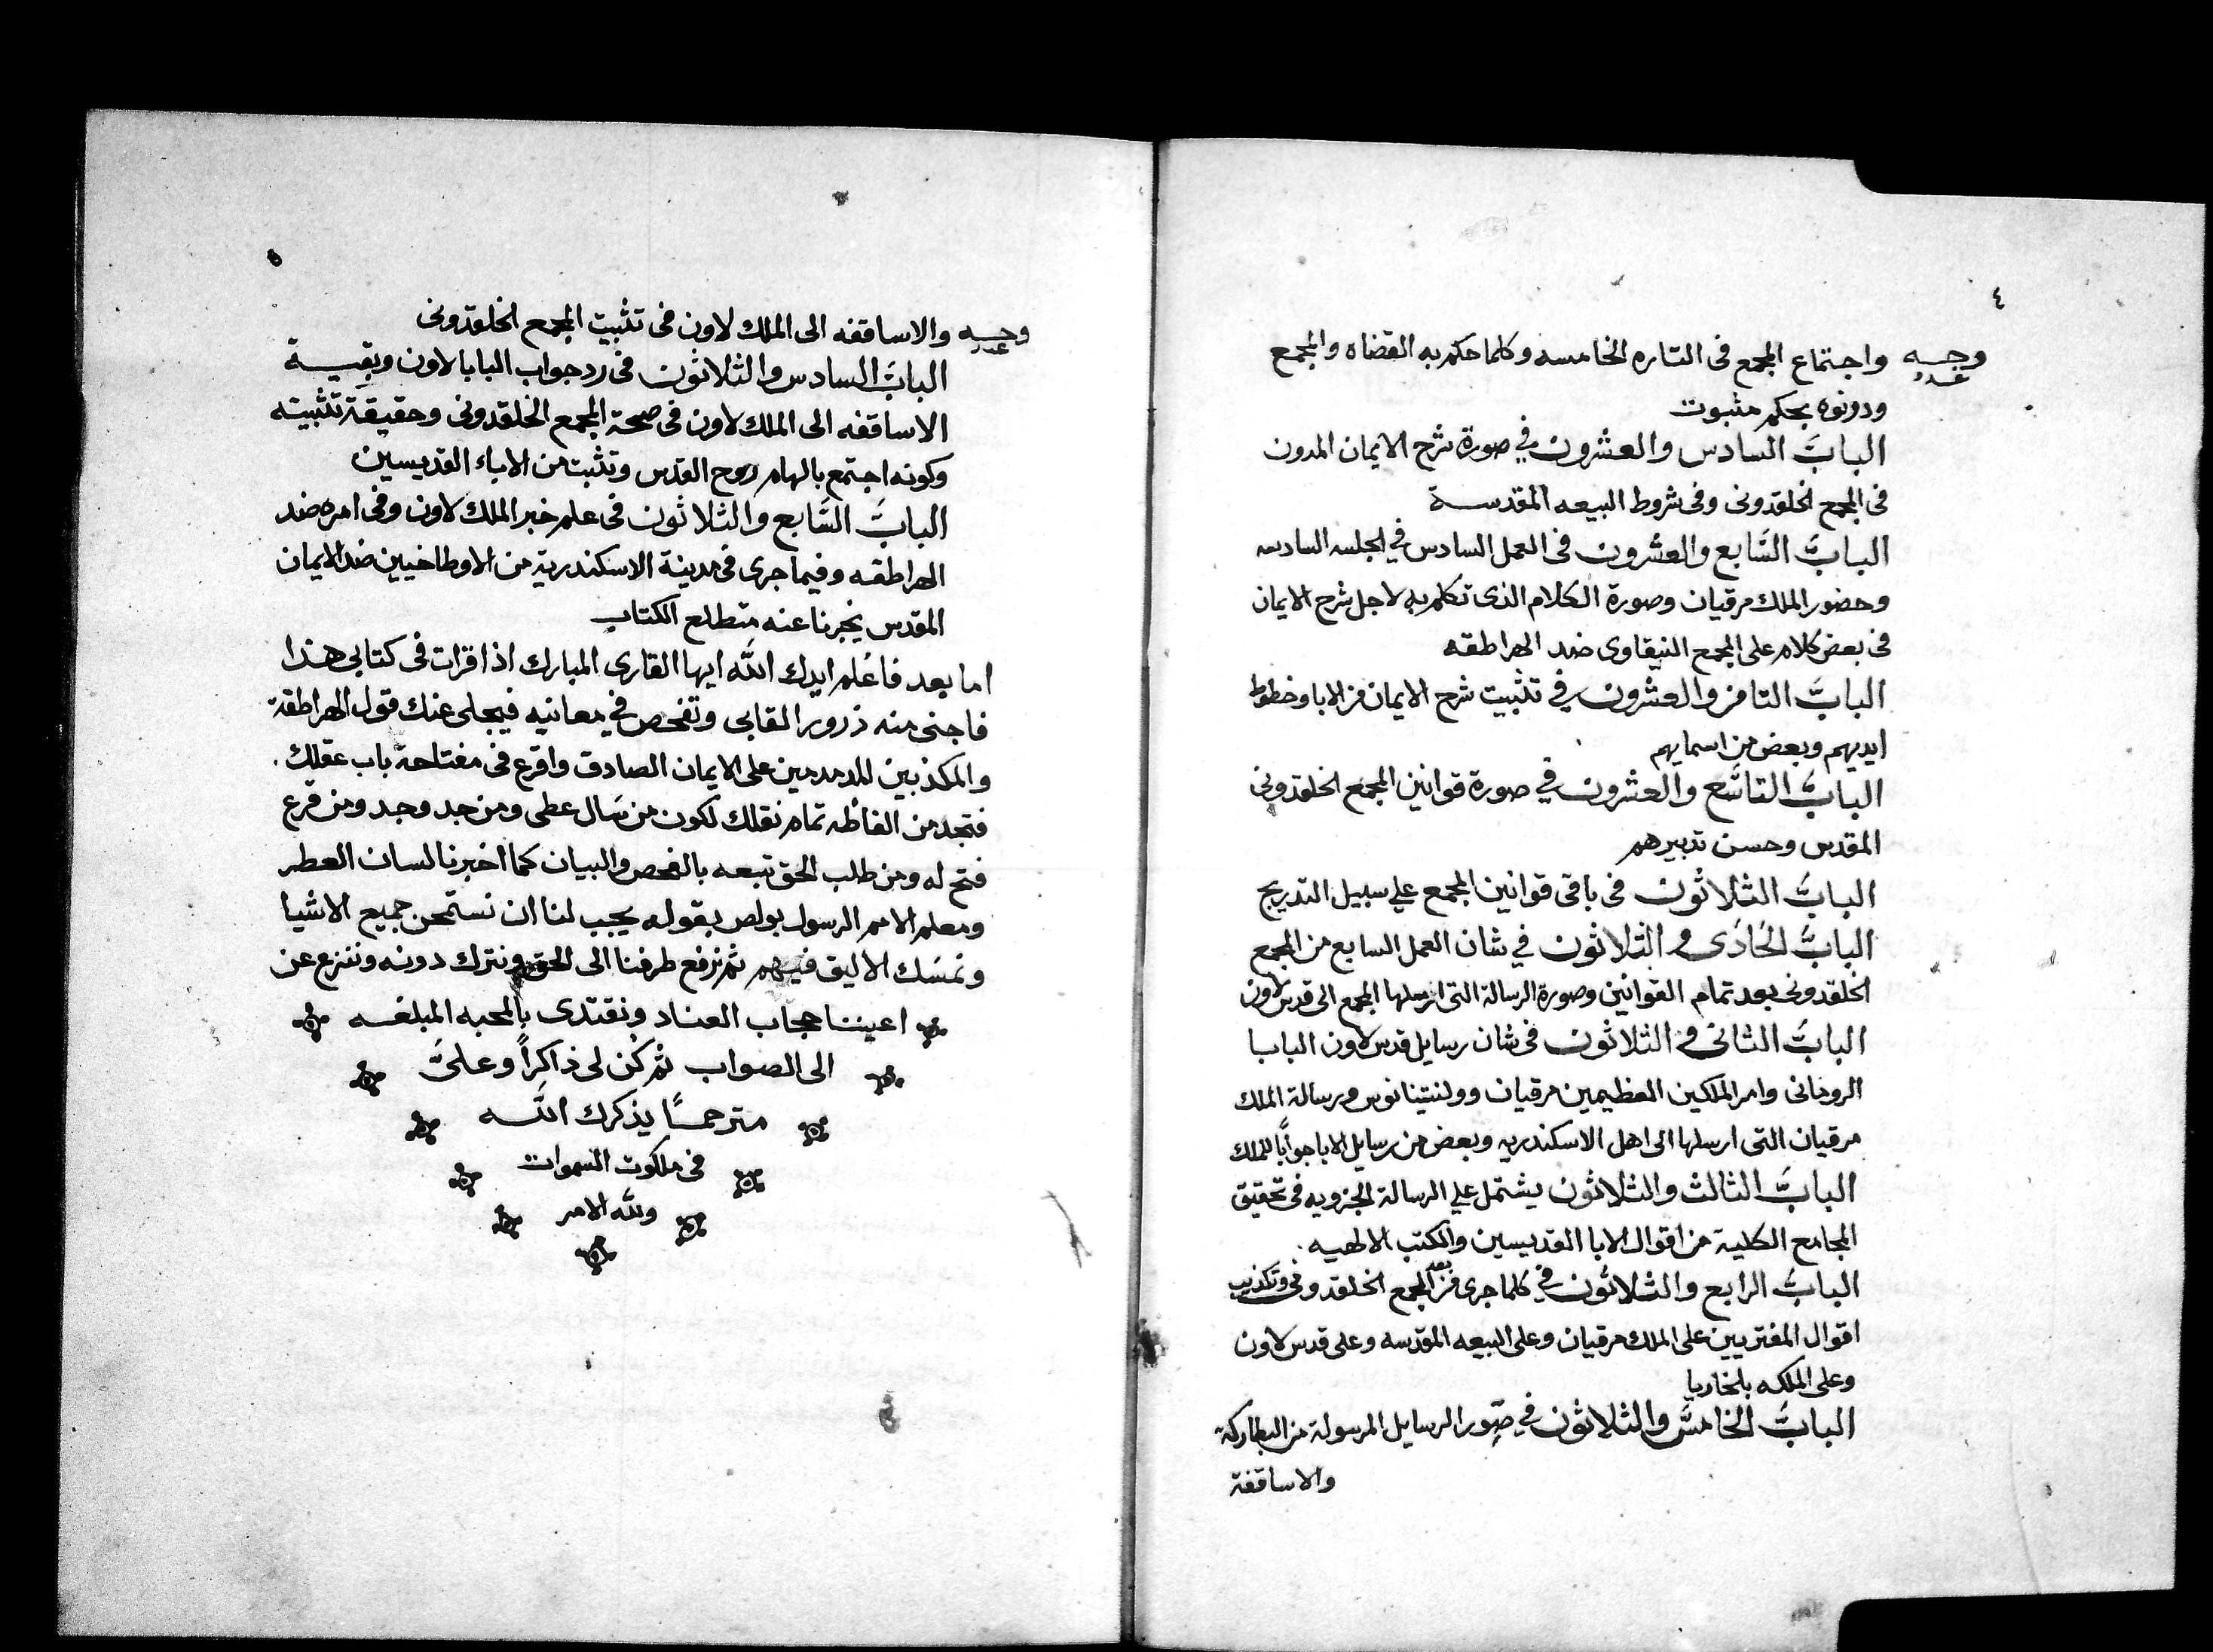 ٤
وجه
عدد
واجتماع المجمع فى التاره الخامسه وكلما حكم به القضاه والمجمع
ودونوه بحكم مثبوت
الباب السادس والعشرون في صورة شرح الايمان المدون
فى المجمع الخلقدونى وفى شروط البيعه المقدسة
الباب السابع والعشرون فى العمل السادس في الجلسه السادسه
وحضور الملك مرقيان وصورة الكلام الذى تكلم به لاجل شرح الايمان
فى بعض كلام على المجمع النيقاوى ضد الهراطقه
الباب الثامن والعشرون في تثبيت شرح الايمان من الابا وخطوط
ايديهم وبعض من اسمايهم
الباب التاسع والعشرون في صورة قوانين المجمع الخلقدونى
المقدس وحسن تدبيرهم
الباب الثلاثون فى باقى قوانين المجمع على سبيل التدريج
الباب الحادى و الثلاثون في شان العمل السابع من المجمع
الخلقدونى بعد تمام القوانين وصورة الرسالة التى ارسلها المجمع الى قدس لاون
الباب الثانى و الثلاثون فى شان رسايل قدس لاون البابا
الرومانى وامر الملكين العظيمين مرقيان وولنتينانوس ورسالة الملك
مرقيان التى ارسلها الى اهل الاسكندريه وبعض من رسايل الابا جوابًا للملك
الباب الثالث والثلاثون يشتمل على الرسالة الجزويه فى تحقيق
المجامع الكلية من اقوال الابا القديسين والكتب الالهيه
الباب الرابع والثلاثون في كلما جرى من بعد المجمع الخلقدونى وتكذيب
اقوال المفتريين على الملك مرقيان وعلى البيعه المقدسه وعلى قدس لاون
وعلى الملكه بلخاريا
الباب الخامس والثلاثون في صور الرسايل المرسولة من البطاركة
والاساقفة
٥
وجه
عدد
والاساقفه الى الملك لاون فى تثبيت المجمع الخلقدونى
الباب السادس والثلاثون فى رد جواب البابا لاون وبقية
الاساقفه الى الملك لاون فى صحة المجمع الخلقدونى وحقيقة تثبيته
وكونه اجتمع بالهام روح القدس وتثبت من الاباء القديسين
الباب السابع والثلاثون فى علم خبر الملك لاون وفى امره ضد
الهراطقه وفيما جرى فى مدينة الاسكندرية من الاوطاخيين ضد الايمان
المقدس يخبرنا عنه متطلع الكتاب
اما بعد فاعلم ايدك الله ايها القارى المبارك اذا قرات فى كتابى هذا
فاجنى منه ذرور المقابى وتفحص في معانيه فيجلى عنك قول الهراطقة
والمكذبين المدمدمين على الايمان الصادق واقرع فى مفتاحه باب عقلك
فتجد من الفاظه تمام نقلك لكون من سال عطى ومن جد وجد ومن قرع
فتح له ومن طلب الحق تبعه بالفحص والبيان كما اخبرنا لسان العطر
ومعلم الامم الرسول بولص بقوله يجب لنا ان نستمحن جميع الاشيا
ونمسك الاليق فيهم ثم نرفع طرفنا الى الحق ونترك دونه وننزع عن
اعيننا حجاب العناد ونقتدى بالمحبه المبلغه
الى الصواب ثم كُن لى ذاكراً وعلىَّ
مترحمًا يذكرك الله
فى ملكوت السموات
ولله الامر